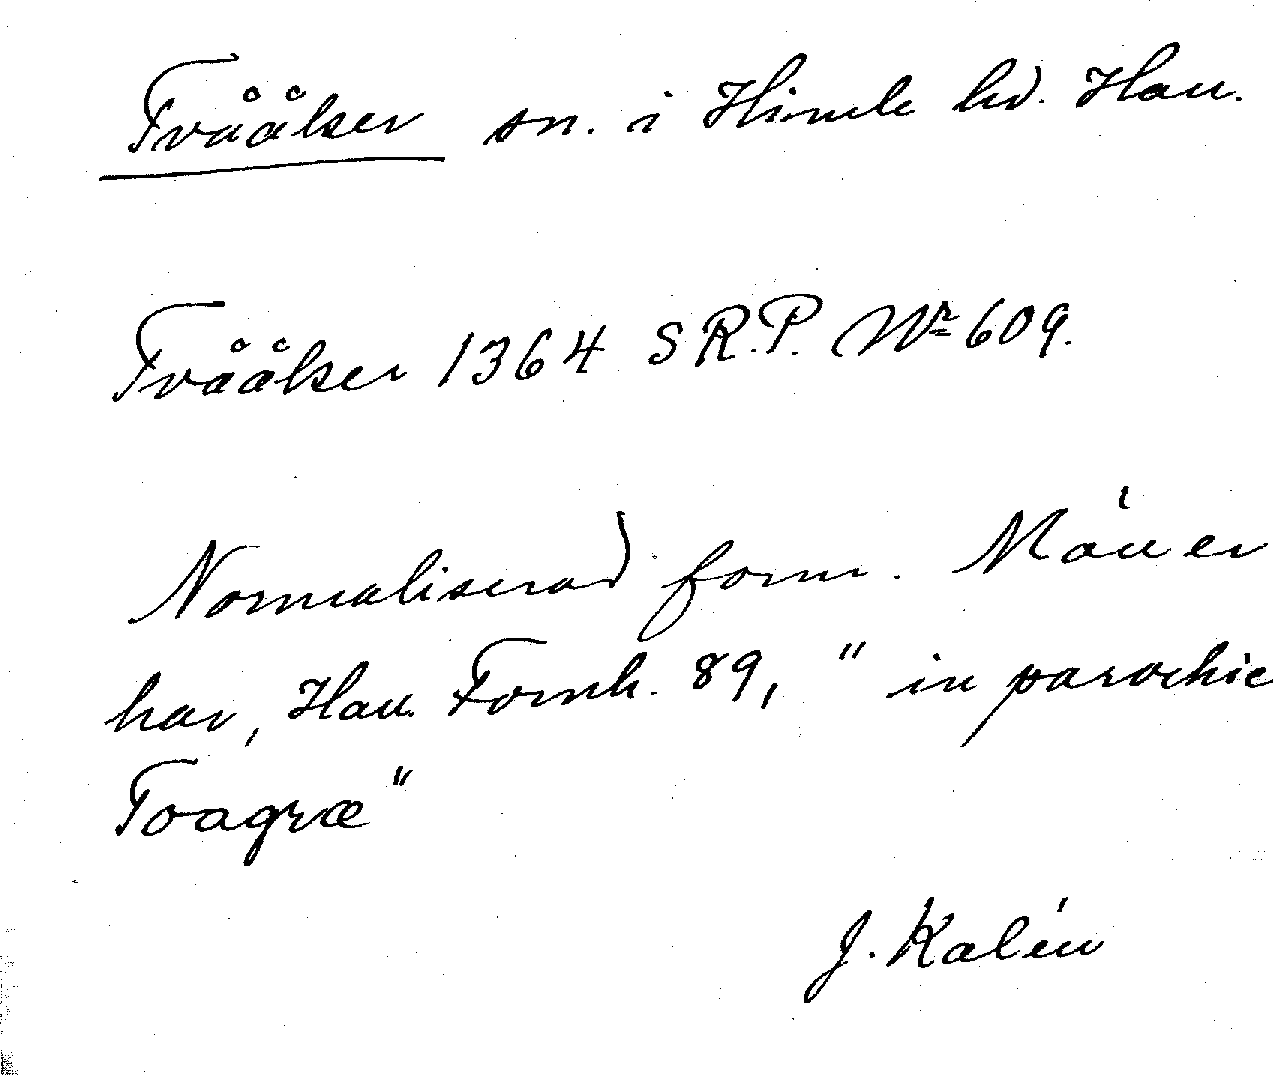 Tvååker sn. i Himle hd. Hall.
Tvååker 1364 S.R.P. Nr 609.
Normaliserad form. Máller
har, Hall. Fornh. 89, "in parochie
Toagræ"
J. Kalén